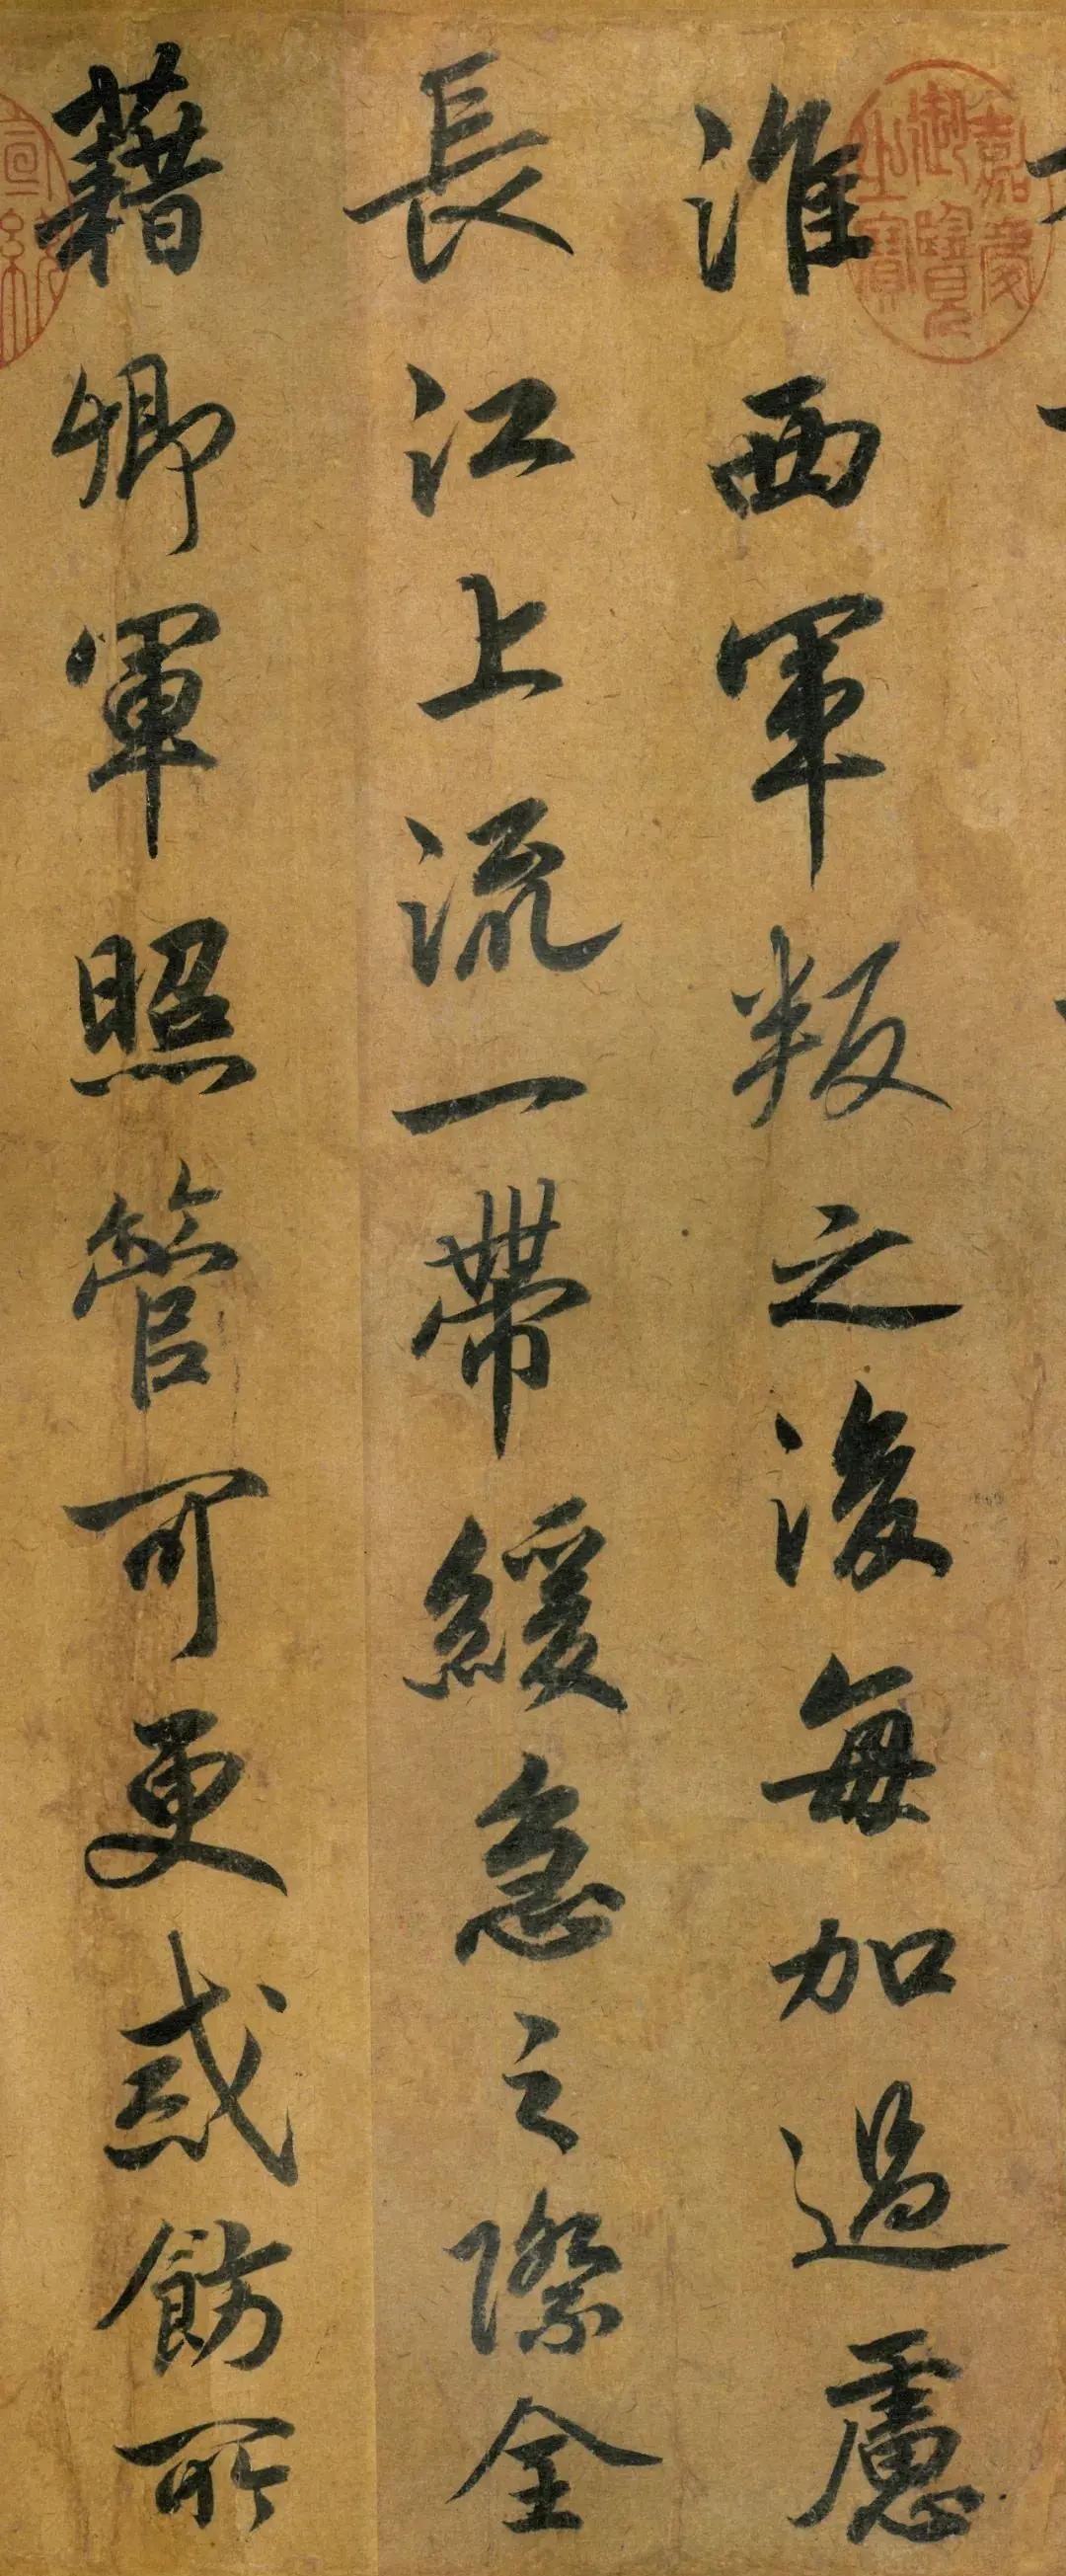 嘉慶御覽之寶
淮西軍叛之後每加過慮
長江上流一帶緩急之際全
藉卿軍照管可更戒飭所
宣統